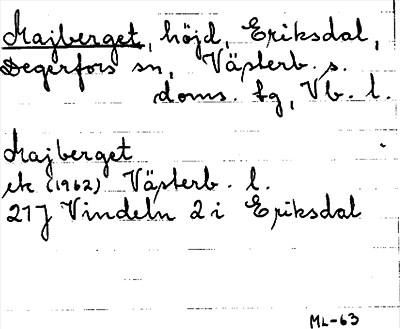 Majberget, höjd, Eriksdal,
Degerfors sn, Västerb. s.
doms. tg, Vb. l.
Majberget
ek (1962) Västerb. l.
21J Vindeln 2 i Eriksdal
ML-63